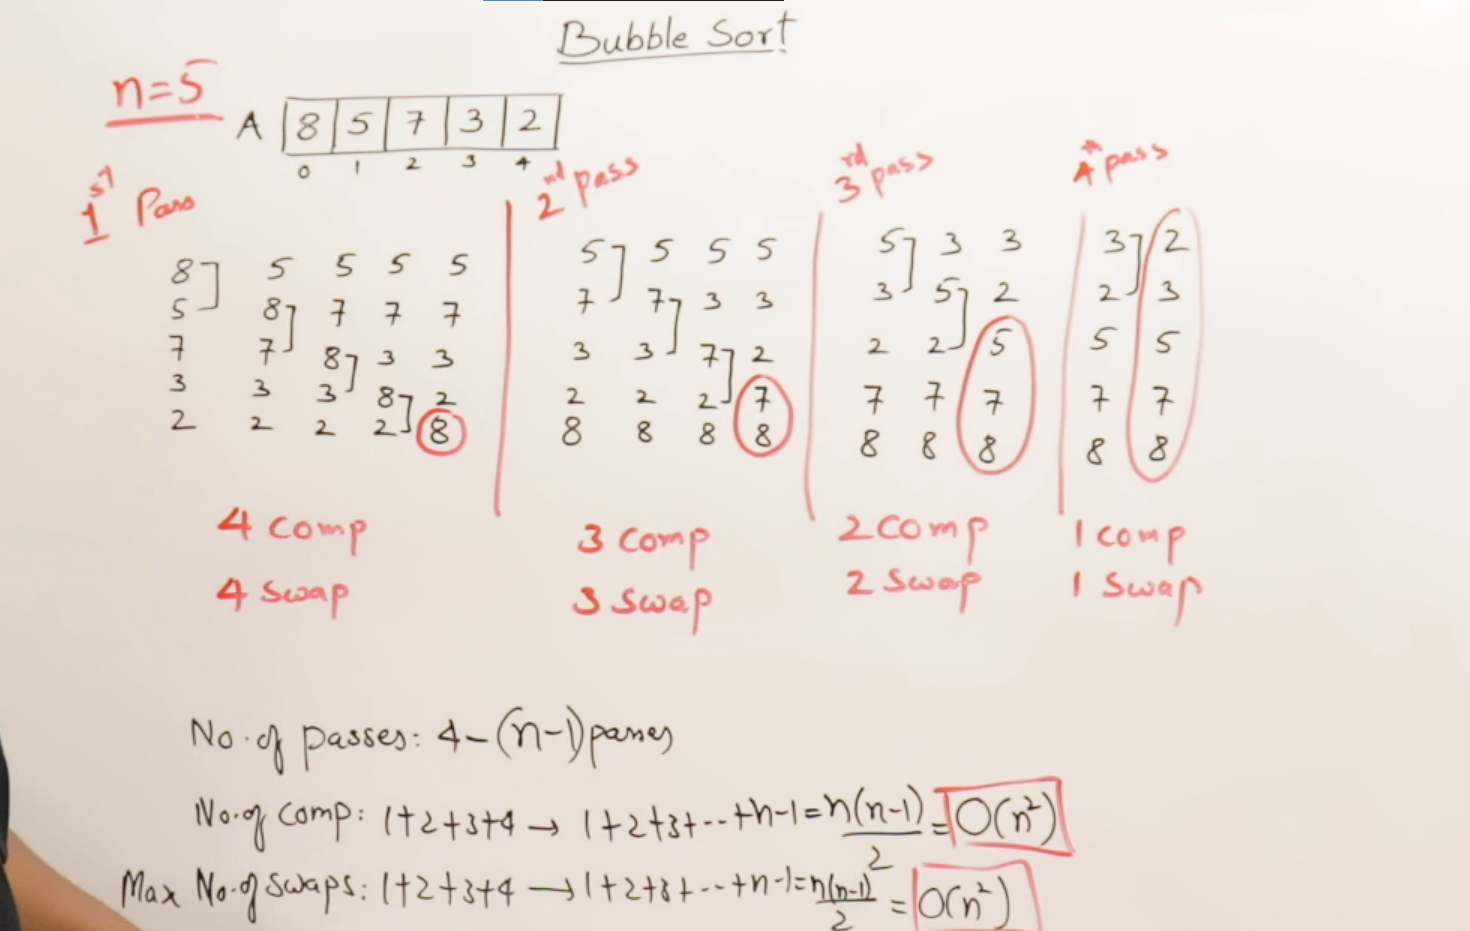 Bubble Sort
n=5
A 8 5 7 3 2
0 1 2 3 4
1st Pass
8 5 5 5 5
5 8 7 7 7
7 7 8 3 3
3 3 3 8 2
2 2 2 2 8
4 Comp
4 Swap
2nd pass
5 5 5 5
7 7 3 3
3 3 7 2
2 2 2 7
8 8 8 8
3 Comp
3 Swap
3rd pass
5 3 3
3 5 2
2 2 5
7 7 7
8 8 8
2 Comp
2 Swap
4th pass
3 2
2 3
5 5
7 7
8 8
1 Comp
1 Swap
No. of passes: 4 - (n-1) passes
No. of Comp: 1+2+3+4 → 1+2+3+--+n-1 = n(n-1)/2 = O(n²)
Max No. of Swaps: 1+2+3+4 → 1+2+3+--+n-1 = n(n-1)/2 = O(n²)